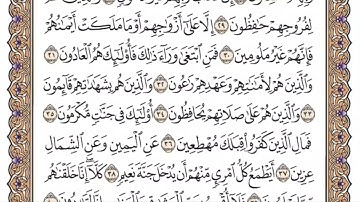 لِفُرُوجِهِمْ حَٰفِظُونَ ٢٩ إِلَّا عَلَىٰٓ أَزْوَٰجِهِمْ أَوْ مَا مَلَكَتْ أَيْمَٰنُهُمْ
فَإِنَّهُمْ غَيْرُ مَلُومِينَ ٣٠ فَمَنِ ٱبْتَغَىٰ وَرَآءَ ذَٰلِكَ فَأُو۟لَٰٓئِكَ هُمُ ٱلْعَادُونَ ٣١
وَٱلَّذِينَ هُمْ لِأَمَٰنَٰتِهِمْ وَعَهْدِهِمْ رَٰعُونَ ٣٢ وَٱلَّذِينَ هُم بِشَهَٰدَٰتِهِمْ قَآئِمُونَ
٣٣ وَٱلَّذِينَ هُمْ عَلَىٰ صَلَاتِهِمْ يُحَافِظُونَ ٣٤ أُو۟لَٰٓئِكَ فِى جَنَّٰتٍ مُّكْرَمُونَ ٣٥
فَمَالِ ٱلَّذِينَ كَفَرُوا۟ قِبَلَكَ مُهْطِعِينَ ٣٦ عَنِ ٱلْيَمِينِ وَعَنِ ٱلشِّمَالِ
عِزِينَ ٣٧ أَيَطْمَعُ كُلُّ ٱمْرِئٍ مِّنْهُمْ أَن يُدْخَلَ جَنَّةَ نَعِيمٍ ٣٨ كَلَّآ إِنَّا خَلَقْنَٰهُم